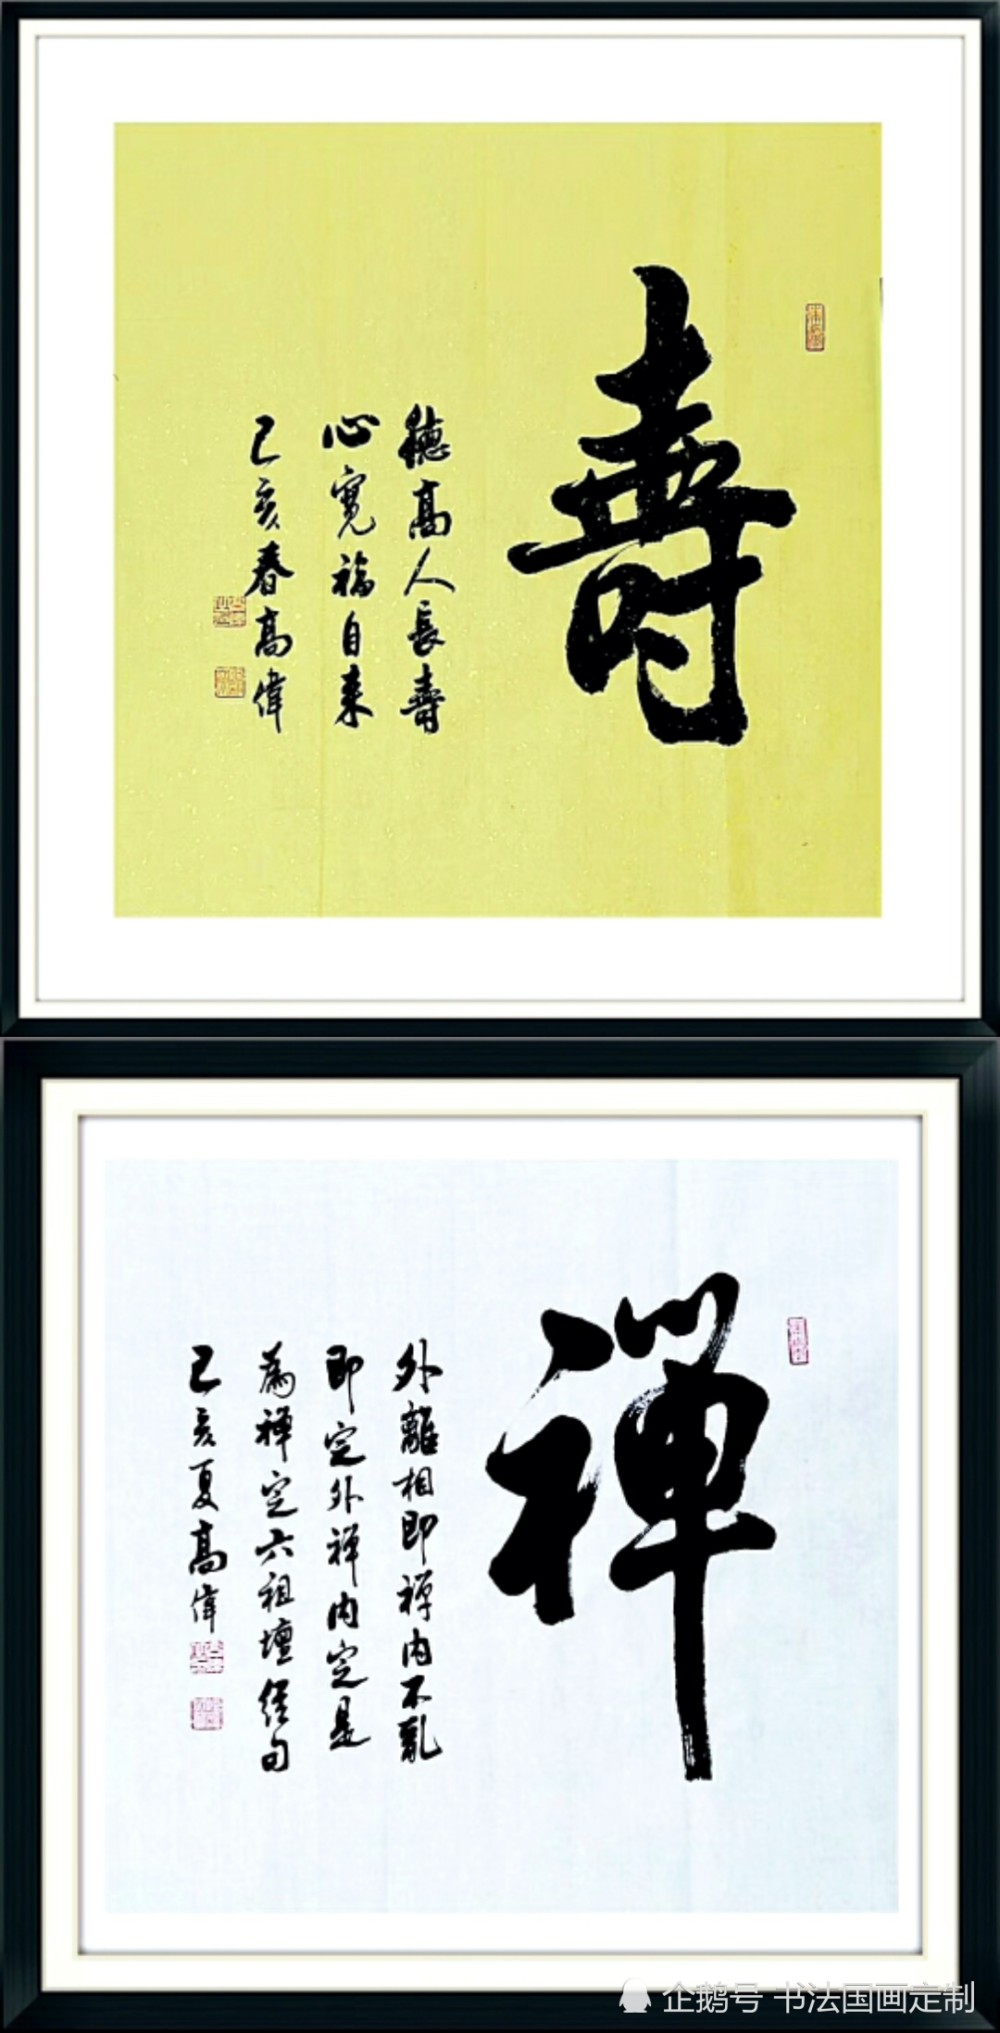 壽
德高人長壽
心寬福自来
己亥春高偉
禅
外離相即禅内不亂
即定外禅内定是
為禅定六祖壇経句
己亥夏高偉
企鹅号 书法国画定制